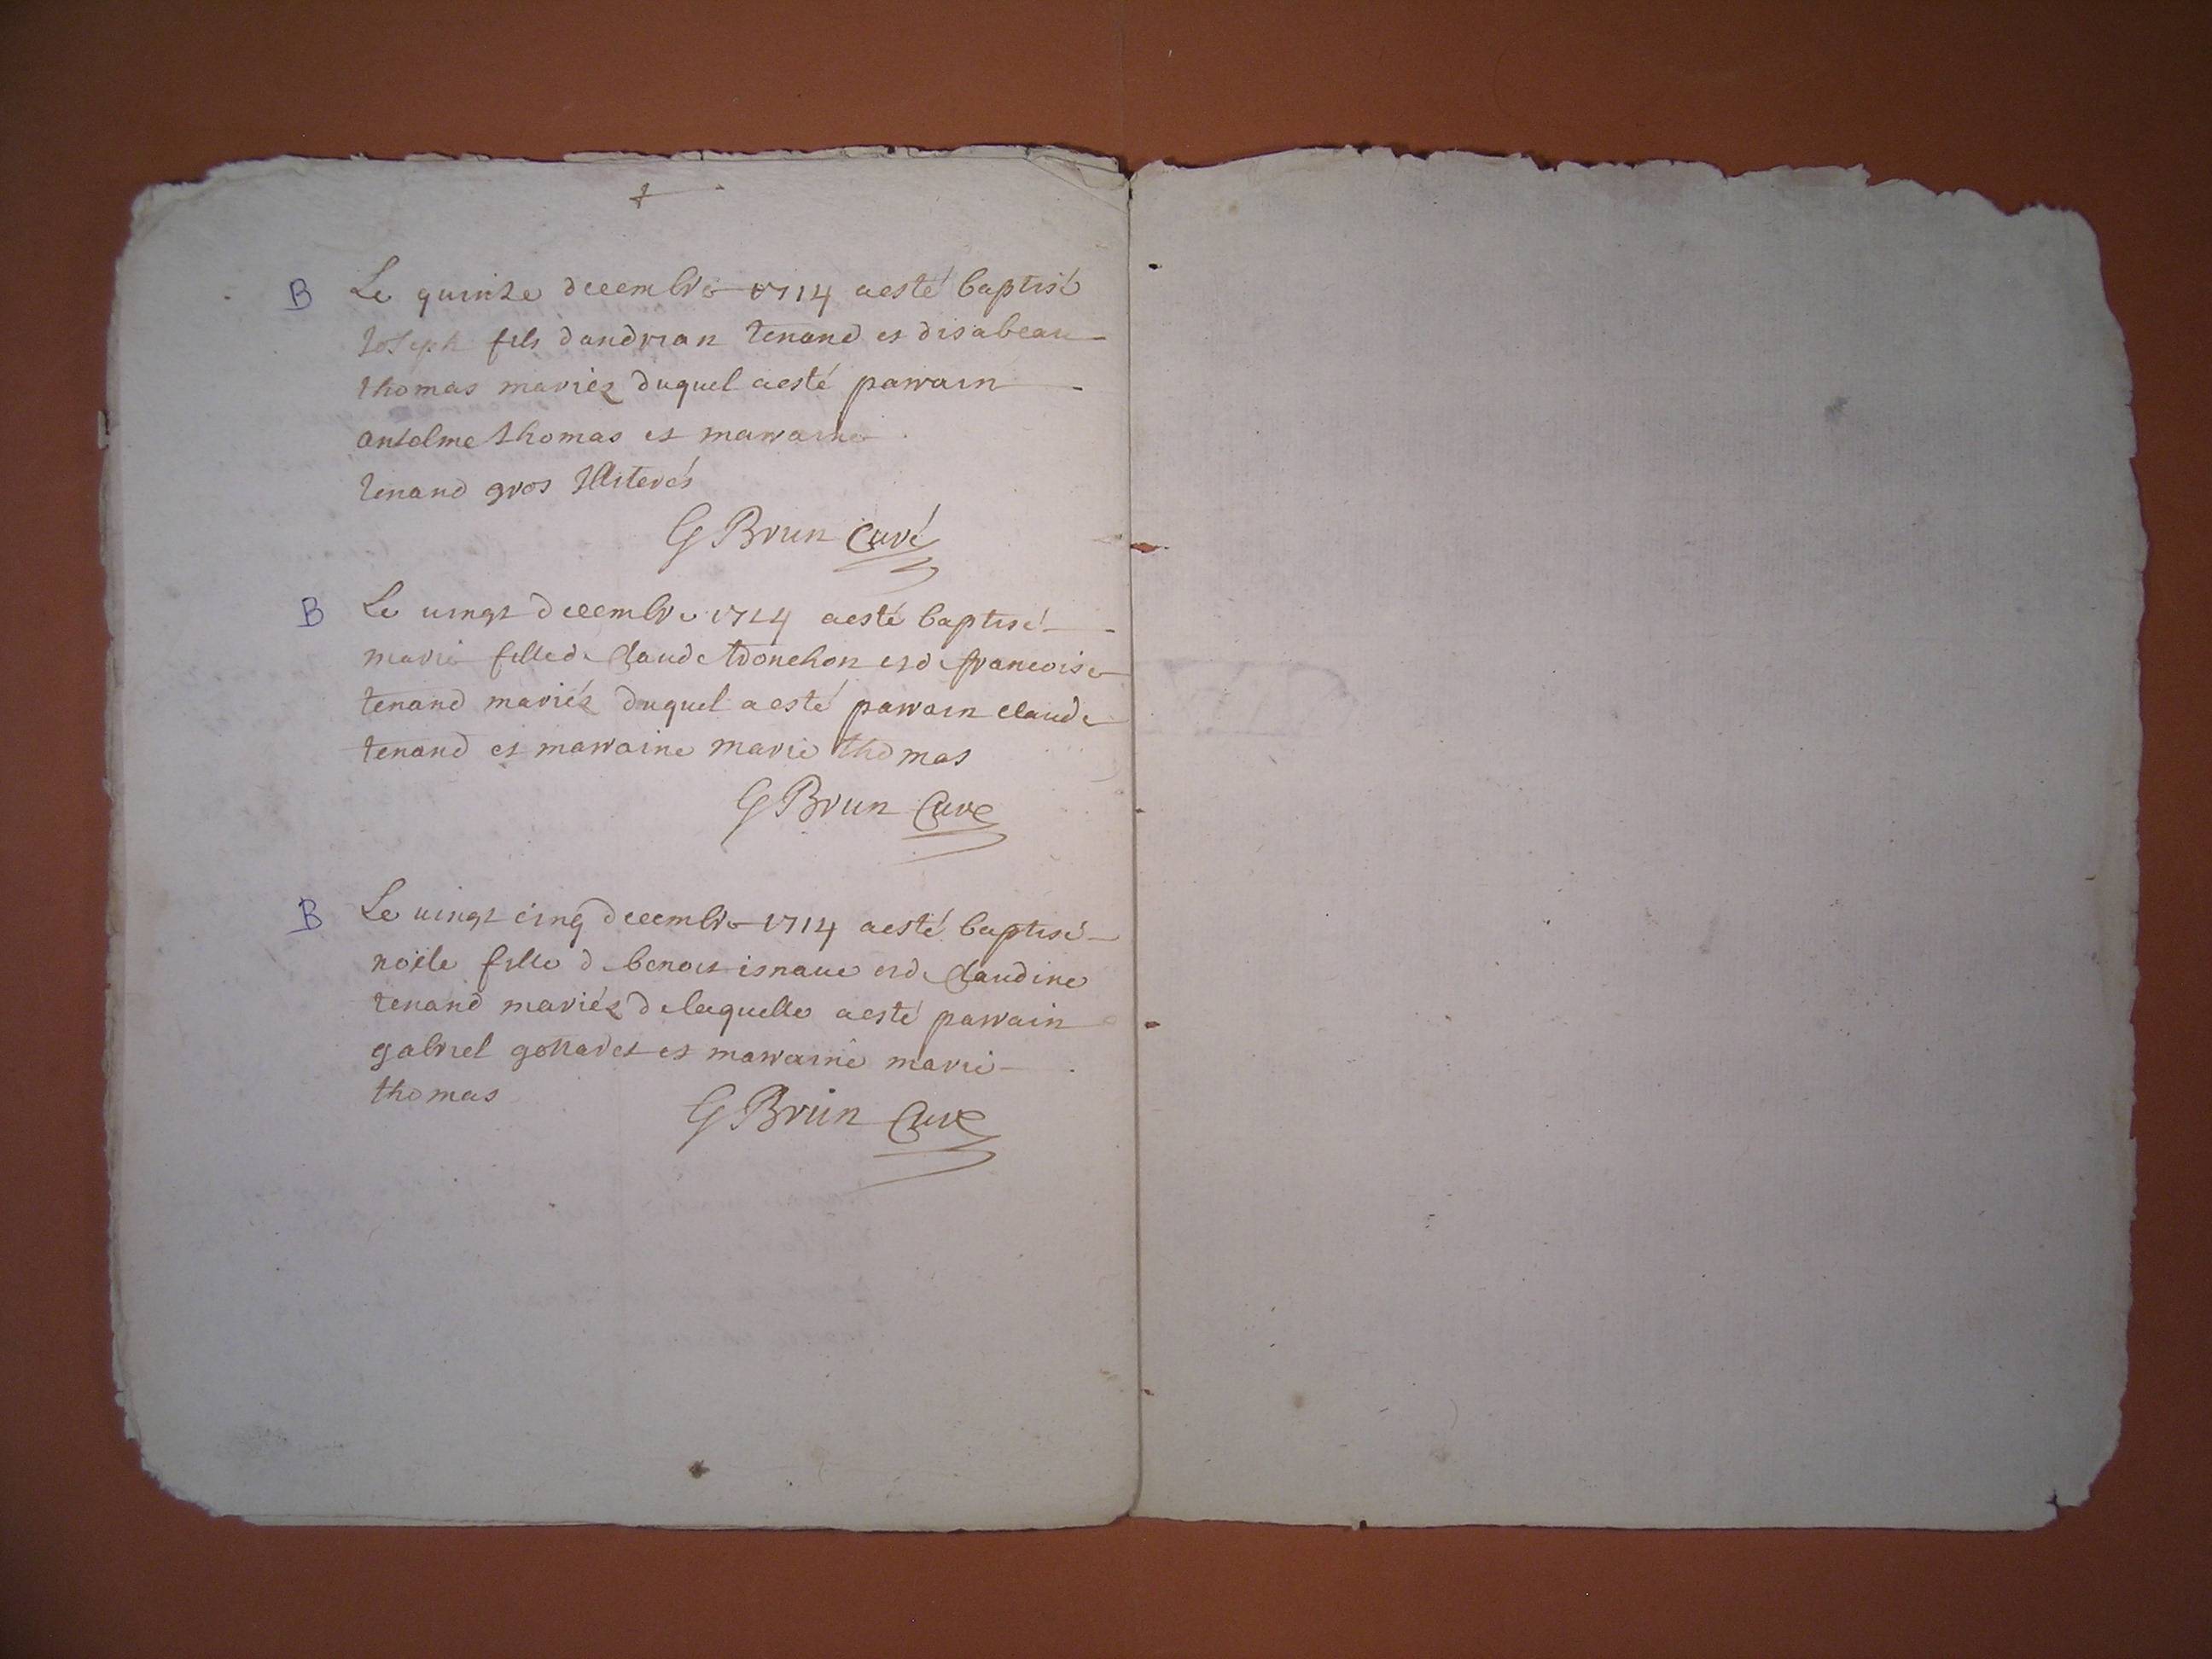 B Le quinze decembre 1714 aesté baptisé
Joseph fils dandrian tenand et disabeau
thomas mariéz duquel aesté parrain
antelme thomas et marraine
tenand gros Illiterés
G Brun Curé
B Le vingt decembre 1714 aesté baptisé
marie fille de Claude et de francoise
tenand mariéz duquel aesté parrain claude
tenand et marraine marie thomas
G Brun Curé
B Le vingt cinq decembre 1714 aesté baptisé
noële fille de benoit et de Claudine
tenand mariéz de laquelle aesté parrain
gabriel et marraine marie
thomas
G Brun Curé